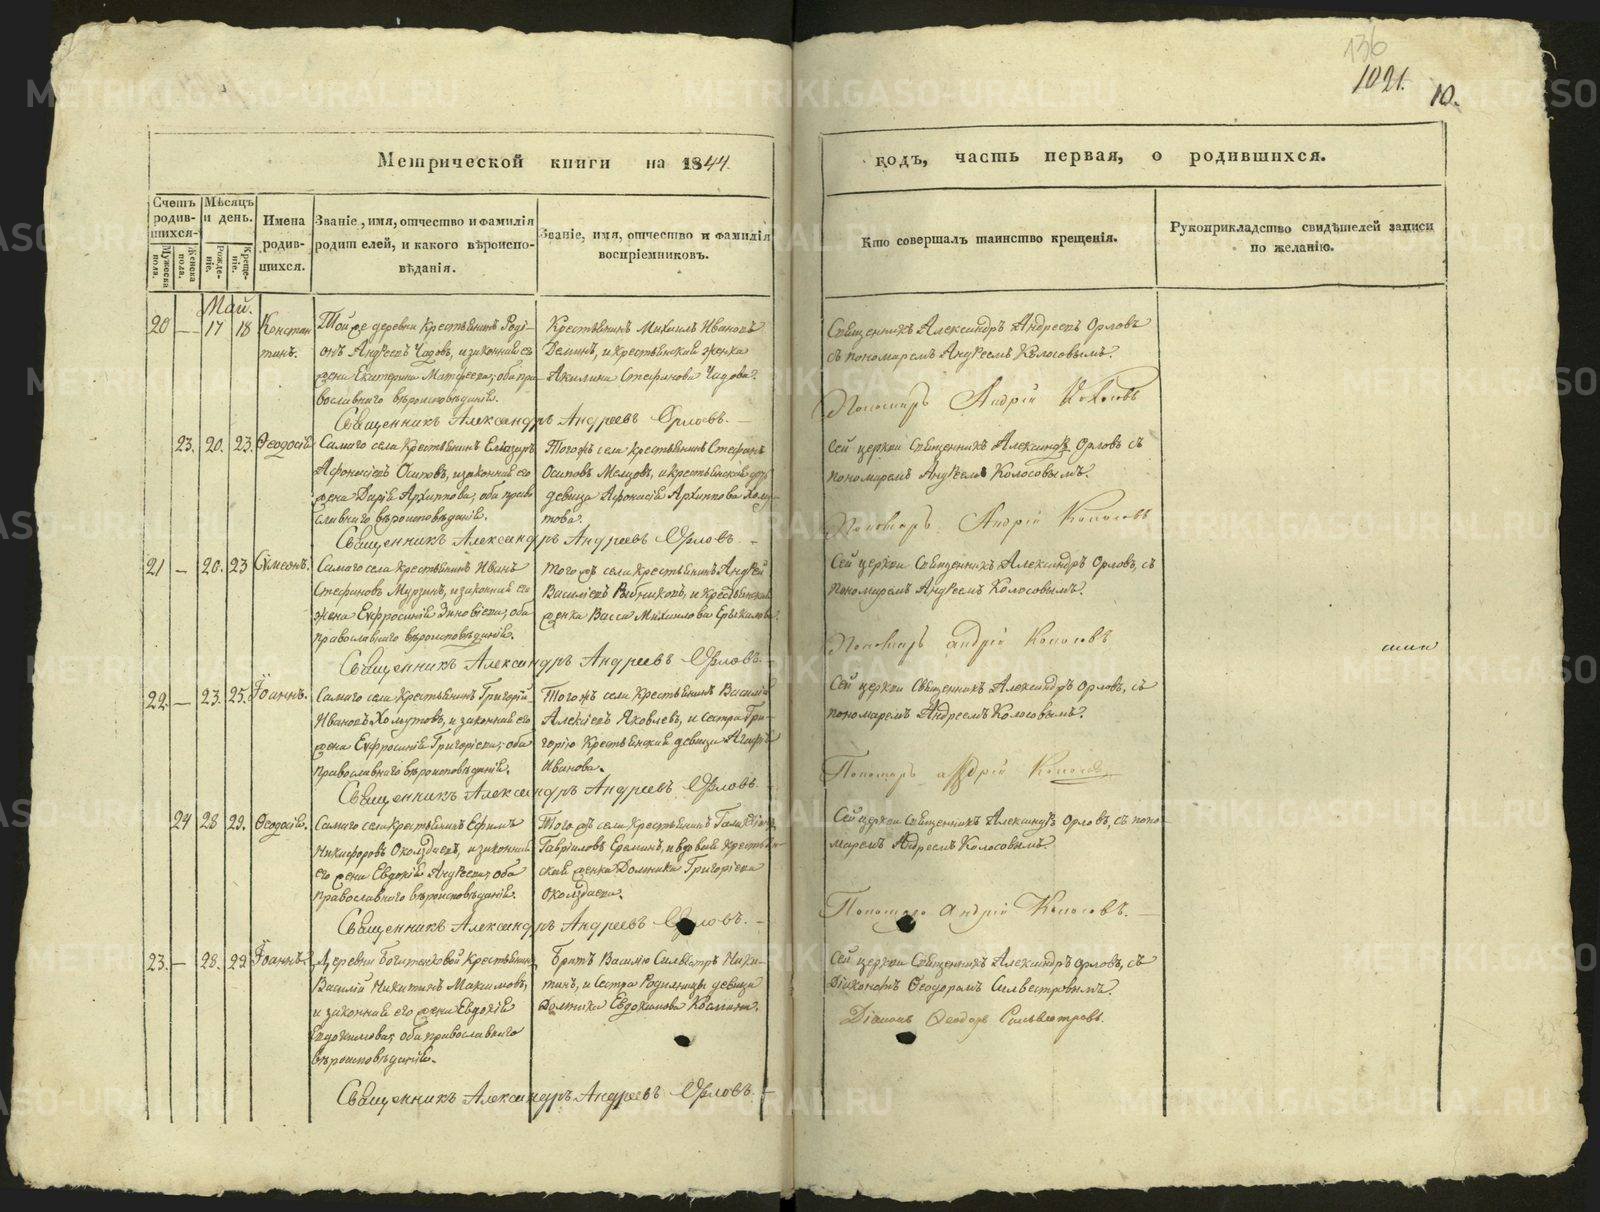 136
1021.
10.
Метрической книги на 1844
годъ, часть первая, о родившихся.
Счетъ родив-шихся.
Мужеска пола.
Женска пола.
Мѣсяцъ и день.
Рожде-ніе.
Креще-ніе.
Имена родив-шихся.
Званіе, имя, отчество и фамилія
родителей, и какого вѣроиспо-
вѣданія.
Званіе, имя, отчество и фамилія
воспріемниковъ.
Кто совершалъ таинство крещенія.
Рукоприкладство свидѣтелей записи
по желанію.
Май.
20 — 17 18 Констан
тинъ.
Той же деревни крестьянинъ Роді-
онъ Андреевъ Чадовъ, и законная его
жена Екатерина Матфеева; оба пра-
вославнаго вѣроисповѣданія.
Крестьянинъ Михаилъ Ивановъ
Деминъ, и крестьянская женка
Акилина Стефанова Чадова.
Священникъ Александръ Андреевъ Орловъ
съ пономаремъ Андреемъ Колосовымъ.
Пономарь Андрій Колосовъ
Священникъ Александръ Андреевъ Орловъ. —
23. 20. 23. Ѳеодосія.
Самаго села крестьянинъ Елеазаръ
Афонасіевъ Осиповъ, и законная его
жена Дарія Архиппова; оба право-
славнаго вѣроисповѣданія.
Тогожъ села крестьянинъ Стефанъ
Осиповъ и крестьянская
девица Афонасія Архиппова
това.
Сей церкви Священникъ Александръ Орловъ съ
пономаремъ Андреемъ Колосовымъ.
Пономарь Андрій Колосовъ
Священникъ Александръ Андреевъ Орловъ. —
21 — 20. 23 Сѵмеонъ.
Самаго села крестьянинъ Иванъ
Стефановъ Мурзинъ, и законная его
жена Евфросинія Зиновіева; оба
православнаго вѣроисповѣданія.
Того же села крестьянинъ Андрей
Василіевъ и крестьянская
женка Васса Михаилова
Сей церкви Священникъ Александръ Орловъ, съ
пономаремъ Андреемъ Колосовымъ.
Пономарь андрій Колосовъ
Священникъ Александръ Андреевъ Орловъ. —
22. — 23. 25. Іоаннъ.
Самаго села крестьянинъ Григорій
Ивановъ Хомутовъ, и законная его
жена Евфросинія Григоріева; оба
православнаго вѣроисповѣданія.
Тогожъ села крестьянинъ Василій
Алексіевъ Яковлевъ, и сестра Гри-
горію крестьянская девица Агафія
Иванова.
Сей церкви Священникъ Александръ Орловъ, съ
пономаремъ Андреемъ Колосовымъ.
Пономарь андрій
Священникъ Александръ Андреевъ Орловъ.
24 28 29. Ѳеодосія.
Самаго села крестьянинъ Ефимъ
Никифоровъ и законная
его жена Евдокія Андреева; оба
православнаго вѣроисповѣданія.
Того же села крестьянинъ
Гавріиловъ Ереминъ, и вдовая крестьян-
ская женка Домника Григоріева
Сей церкви Священникъ Александръ Орловъ, съ поно-
маремъ Андреемъ Колосовымъ.
Пономарь андрій Колосовъ. —
Священникъ Александръ Андреевъ Орловъ. —
23. — 28. 29 Іоаннъ.
Деревни крестьянинъ
Василій Никитинъ Максимовъ,
и законная его жена Евдокія
Евдокимова; оба православнаго
вѣроисповѣданія.
Братъ Василію Сильвестръ Ники-
тинъ, и сестра Родильницы девица
Домника Евдокимова
Сей церкви Священникъ Александръ Орловъ, съ
Діакономъ Ѳеодоромъ Сильвестровымъ.
Діаконъ Ѳеодоръ Сильвестровъ.
Священникъ Александръ Андреевъ Орловъ. —
METRIKI.GASO-URAL.RU